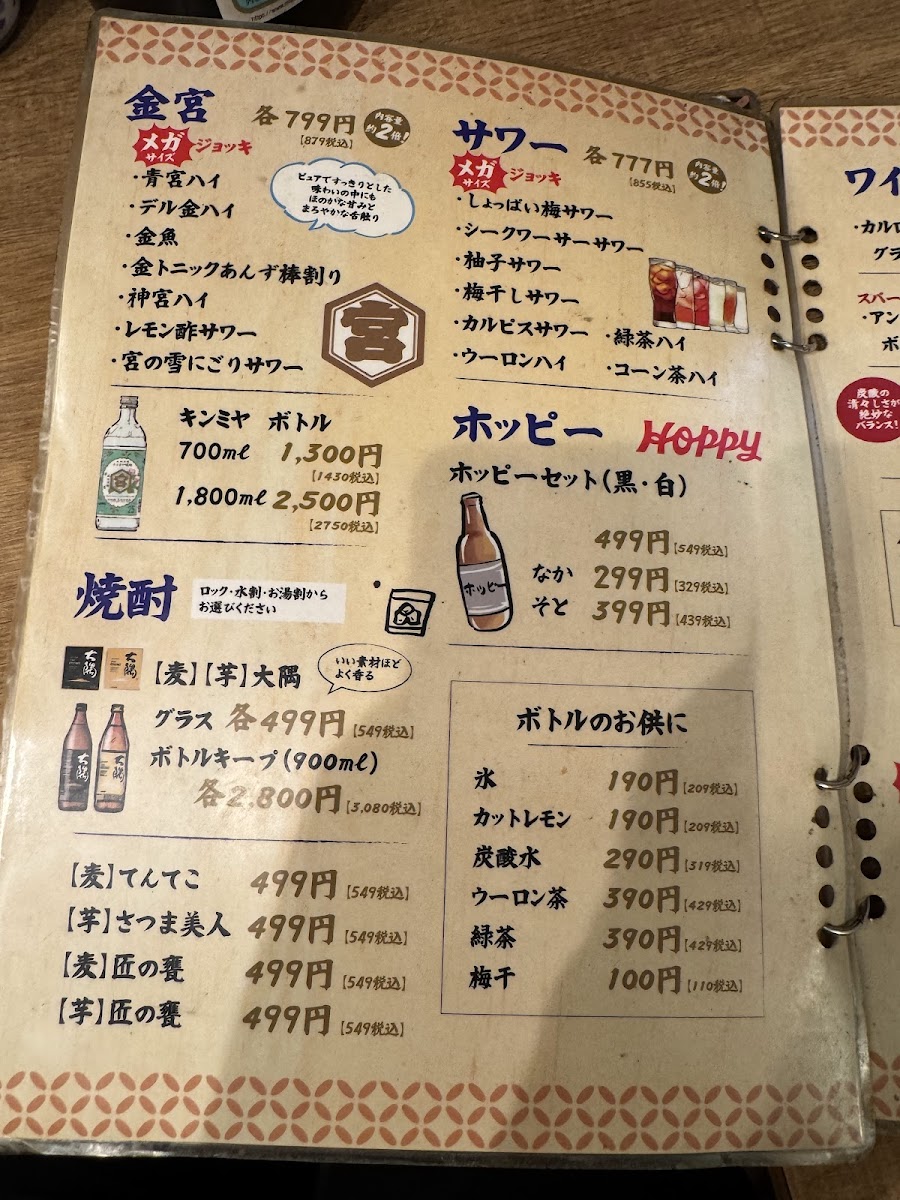 金宮
各799円
【879税込】
内容量
約2倍!
メガ
サイズ
ジョッキ
・青宮ハイ
・デル金ハイ
・金魚
・金トニックあんず棒割り
・神宮ハイ
・レモン酢サワー
・宮の雪にごりサワー
ピュアですっきりとした
味わいの中にも
ほのかな甘みと
まろやかな舌触り
宮
キンミヤ ボトル
700ml 1,300円
【1430税込】
1,800ml 2,500円
【2750税込】
焼酎
ロック・水割・お湯割から
お選びください
大隅
大隅
【麦】【芋】大隅
いい素材ほど
よく香る
グラス 各499円【549税込】
ボトルキープ(900ml)
各2,800円【3,080税込】
大隅
大隅
【麦】てんてこ 499円【549税込】
【芋】さつま美人 499円【549税込】
【麦】匠の甕 499円【549税込】
【芋】匠の甕 499円【549税込】
サワー
各777円
【855税込】
内容量
約2倍!
メガ
サイズ
ジョッキ
・しょっぱい梅サワー
・シークワーサーサワー
・柚子サワー
・梅干しサワー
・カルピスサワー
・ウーロンハイ
・緑茶ハイ
・コーン茶ハイ
ホッピー
HOPPY
ホッピーセット(黒・白)
499円【549税込】
なか 299円【329税込】
そと 399円【439税込】
ホッピー
ボトルのお供に
氷 190円【209税込】
カットレモン 190円【209税込】
炭酸水 290円【319税込】
ウーロン茶 390円【429税込】
緑茶 390円【429税込】
梅干 100円【110税込】
ワイ
・カルロ
グラ
スパー
・アン
ボ
炭酸の
清々しさが
絶妙な
バランス!